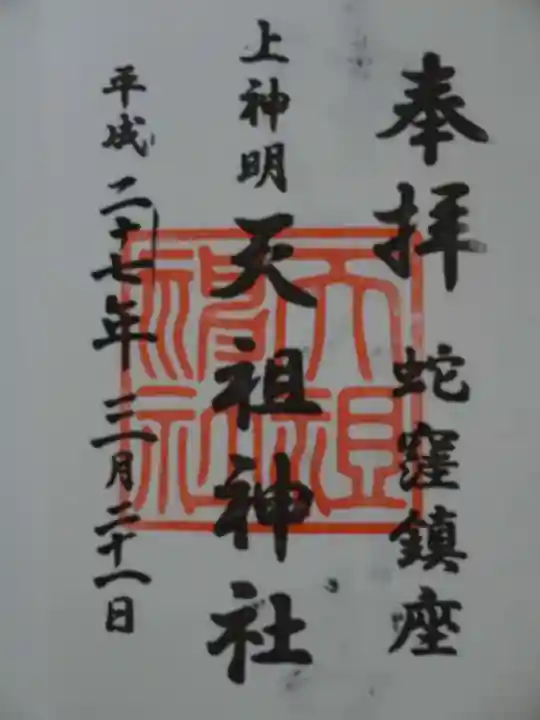 奉拝 蛇窪鎮座
上神明 天祖神社
平成二十七年三月二十一日
天祖神社